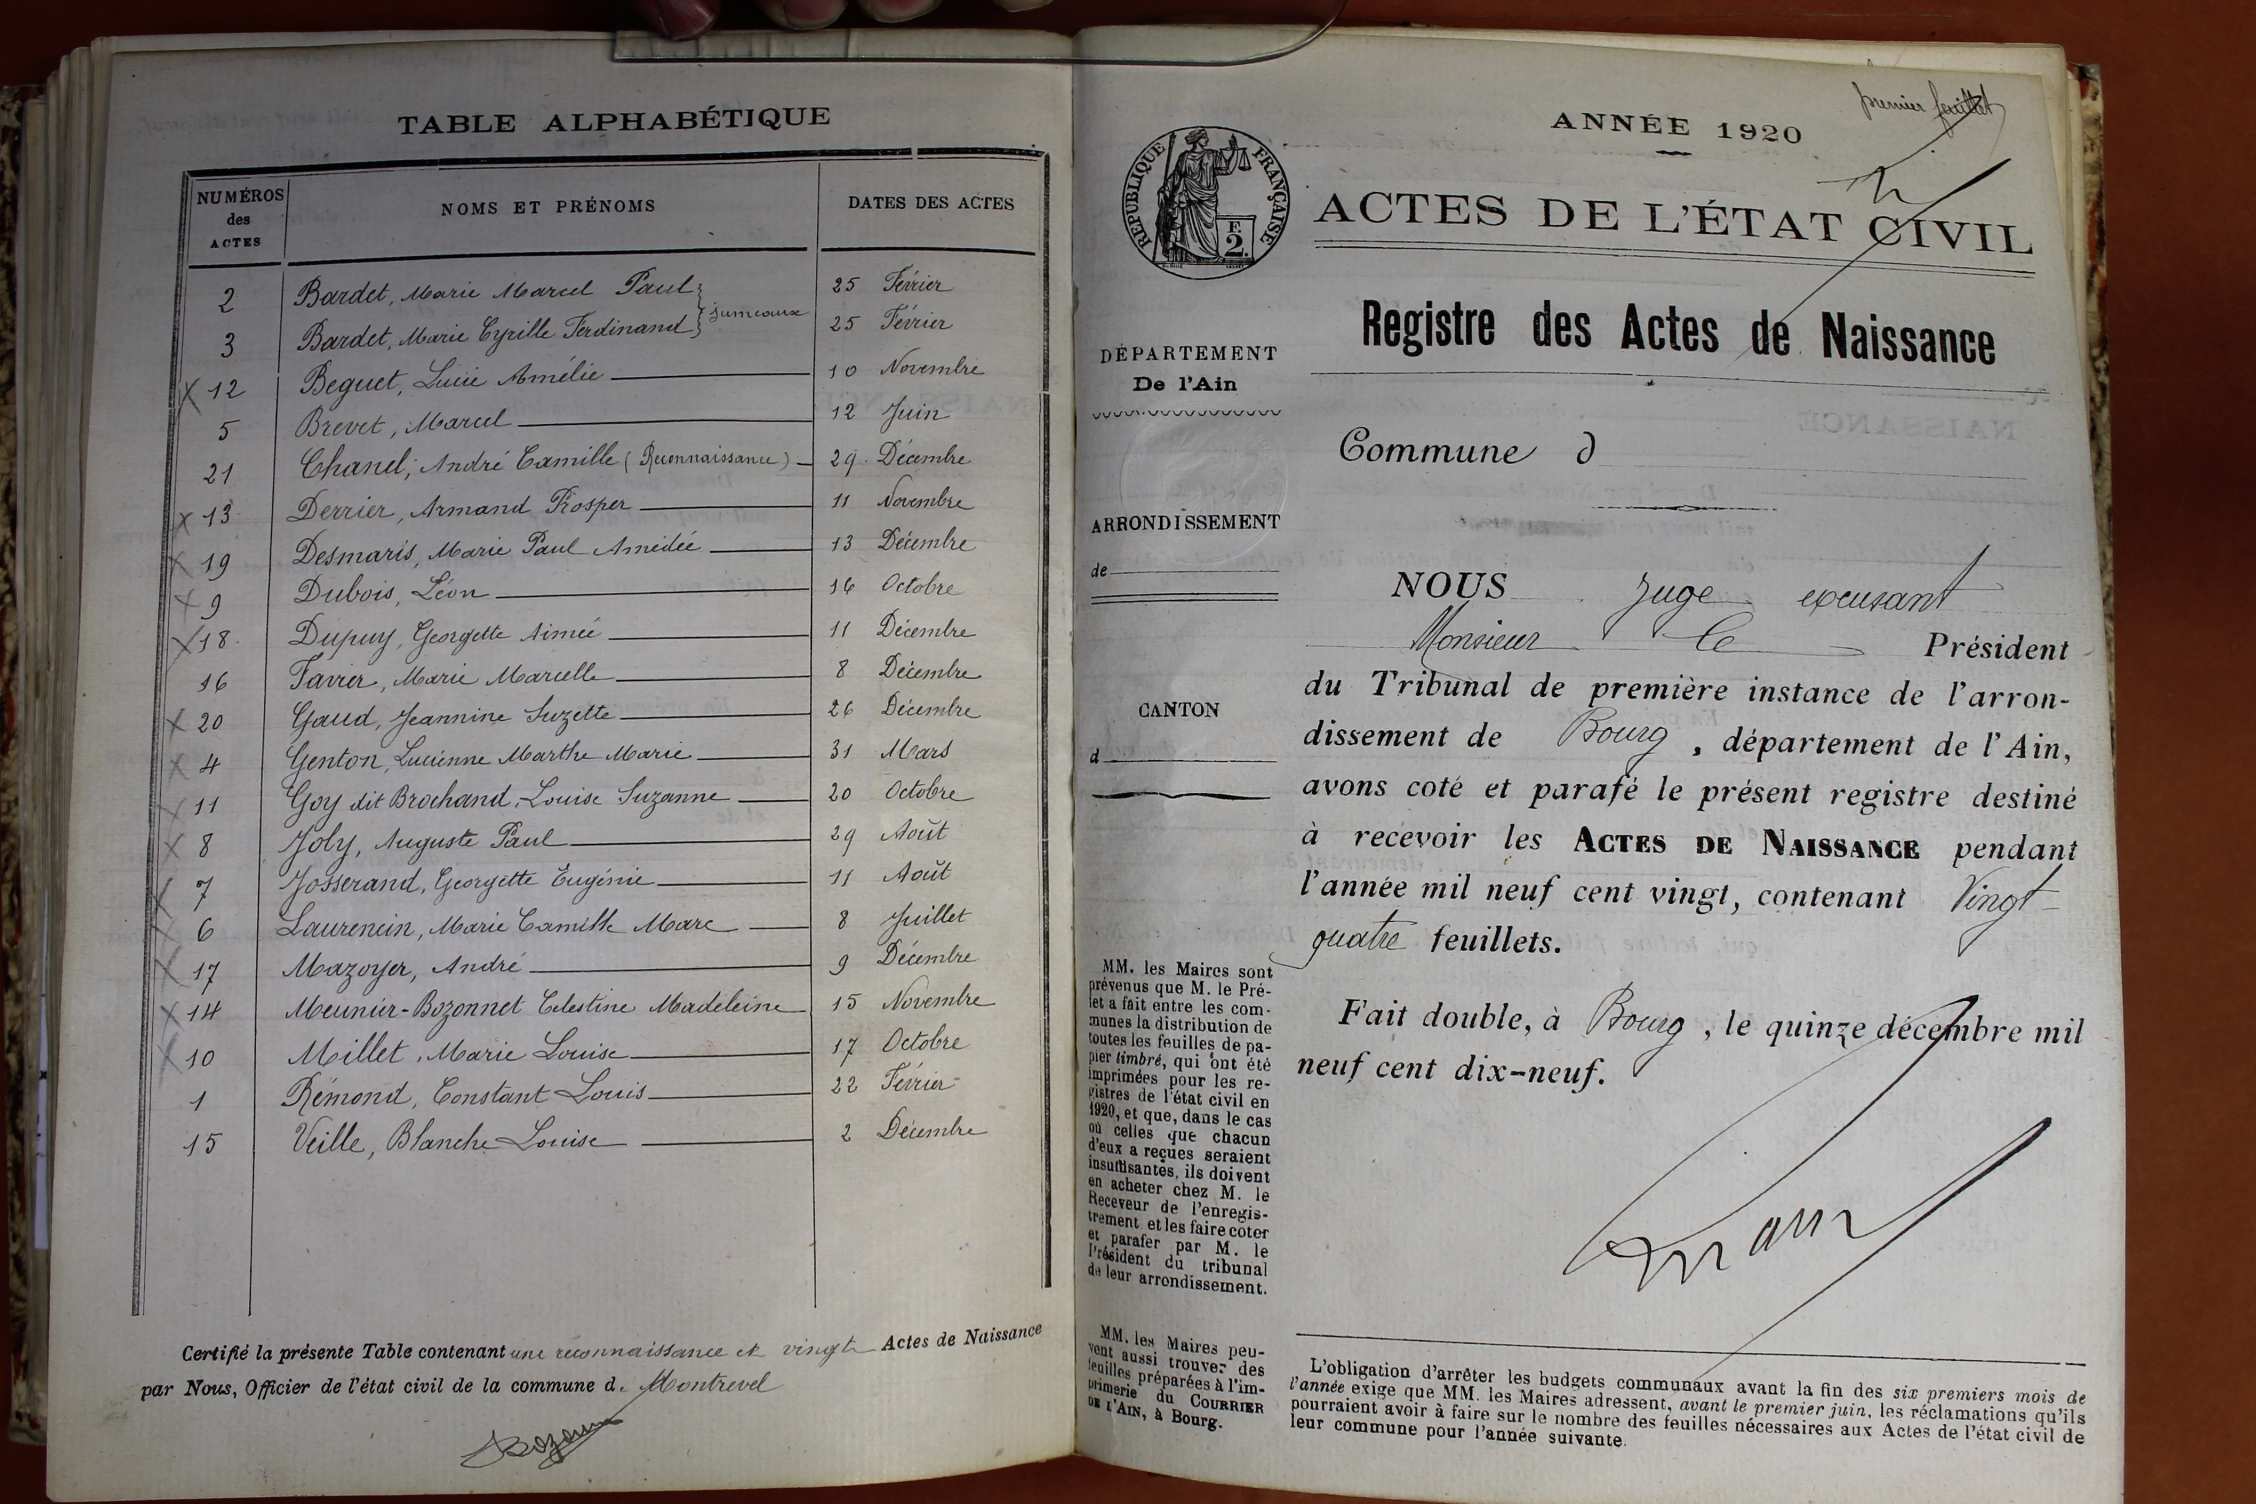 TABLE ALPHABÉTIQUE
NUMÉROS des ACTES | NOMS ET PRÉNOMS | DATES DES ACTES
2 Bardet, Marie Marcel Paul } jumeaux 25 Février
3 Bardet, Marie Cyrille Ferdinand } 25 Février
x 12 Beguet, Lucie Amélie 10 Novembre
5 Brevet, Marcel 12 Juin
21 Chanel, André Camille (Reconnaissance) 29 Décembre
x 13 Derrier, Armand Prosper 11 Novembre
x 19 Desmaris, Marie Paul Amédée 13 Décembre
x 9 Dubois, Léon 16 Octobre
x 18 Dupuy, Georgette Aimée 11 Décembre
16 Favier, Marie Marcelle 8 Décembre
x 20 Gaud, Jeannine Suzette 26 Décembre
x 4 Genton, Lucienne Marthe Marie 31 Mars
x 11 Goy dit Brochand, Louise Suzanne 20 Octobre
x 8 Joly, Auguste Paul 29 Août
x 7 Josserand, Georgette Eugénie 11 Août
x 6 Laurencin, Marie Camille Marc 8 Juillet
x 17 Mazoyer, André 9 Décembre
x 14 Meunier-Bozonnet Célestine Madeleine 15 Novembre
x 10 Millet, Marie Louise 17 Octobre
1 Rémond, Constant Louis 22 Février
15 Veille, Blanche Louise 2 Décembre
Certifié la présente Table contenant une reconnaissance et vingt Actes de Naissance
par Nous, Officier de l'état civil de la commune d. Montrevel
premier feuillet
ANNÉE 1920
RÉPUBLIQUE FRANÇAISE
F. 2.
ACTES DE L'ÉTAT CIVIL
Registre des Actes de Naissance
DÉPARTEMENT
De l'Ain
Commune d
ARRONDISSEMENT
de
CANTON
d
NOUS Juge excusant
Monsieur le Président
du Tribunal de première instance de l'arron-
dissement de Bourg, département de l'Ain,
avons coté et parafé le présent registre destiné
à recevoir les ACTES DE NAISSANCE pendant
l'année mil neuf cent vingt, contenant Vingt
quatre feuillets.
Fait double, à Bourg, le quinze décembre mil
neuf cent dix-neuf.
MM. les Maires sont
prévenus que M. le Pré-
fet a fait entre les com-
munes la distribution de
toutes les feuilles de pa-
pier timbré, qui ont été
imprimées pour les re-
gistres de l'état civil en
1920, et que, dans le cas
où celles que chacun
d'eux a reçues seraient
insuffisantes, ils doivent
en acheter chez M. le
Receveur de l'enregis-
trement et les faire coter
et parafer par M. le
Président du tribunal
de leur arrondissement.
MM. les Maires peu-
vent aussi trouver des
feuilles préparées à l'im-
primerie du COURRIER
DE L'AIN, à Bourg.
L'obligation d'arrêter les budgets communaux avant la fin des six premiers mois de
l'année exige que MM. les Maires adressent, avant le premier juin, les réclamations qu'ils
pourraient avoir à faire sur le nombre des feuilles nécessaires aux Actes de l'état civil de
leur commune pour l'année suivante.